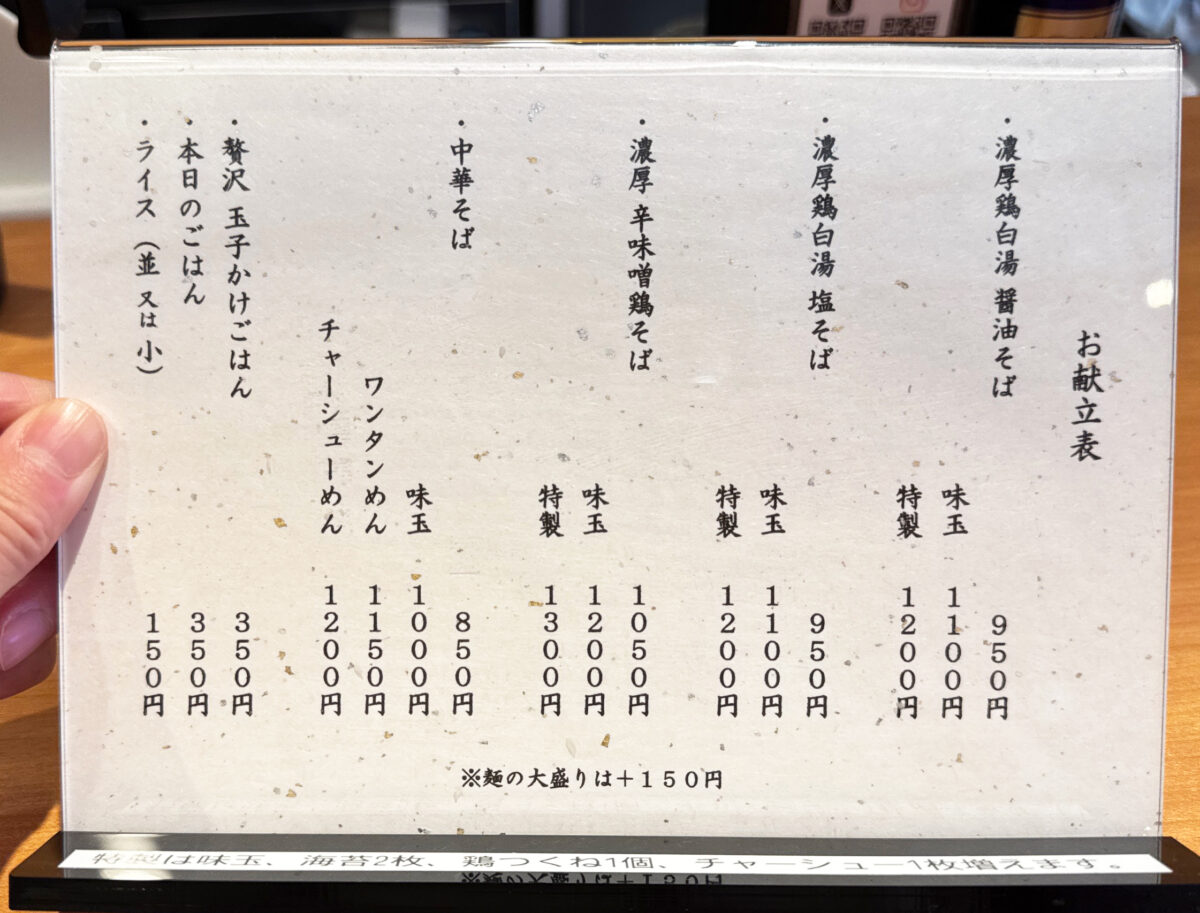 お献立表
・濃厚鶏白湯 醤油そば 950円
味玉 1100円
特製 1200円
・濃厚鶏白湯 塩そば 950円
味玉 1100円
特製 1200円
・濃厚 辛味噌鶏そば 1050円
味玉 1200円
特製 1300円
・中華そば 850円
味玉 1000円
ワンタンめん 1150円
チャーシューめん 1200円
・贅沢 玉子かけごはん 350円
・本日のごはん 350円
・ライス(並 又は 小) 150円
※麺の大盛りは+150円
特製は味玉、海苔2枚、鶏つくね1個、チャーシュー1枚増えます。